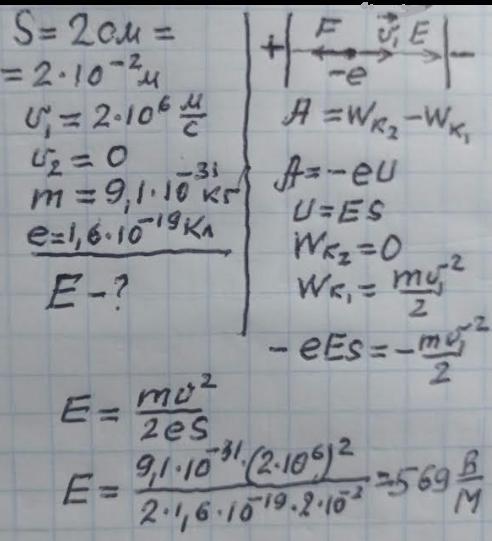 S = 2 см =
= 2·10⁻² м
υ₁ = 2·10⁶ м/с
υ₂ = 0
m = 9,1·10⁻³¹ кг
e = 1,6·10⁻¹⁹ Кл
E - ?
+ F υ⃗₁ E -
-e
A = Wк₂ - Wк₁
A = -eU
U = ES
Wк₂ = 0
Wк₁ = mυ₁²/2
- eES = - mυ₁²/2
E = mυ²/2eS
E = 9,1·10⁻³¹·(2·10⁶)²/2·1,6·10⁻¹⁹·2·10⁻² = 569 В/м